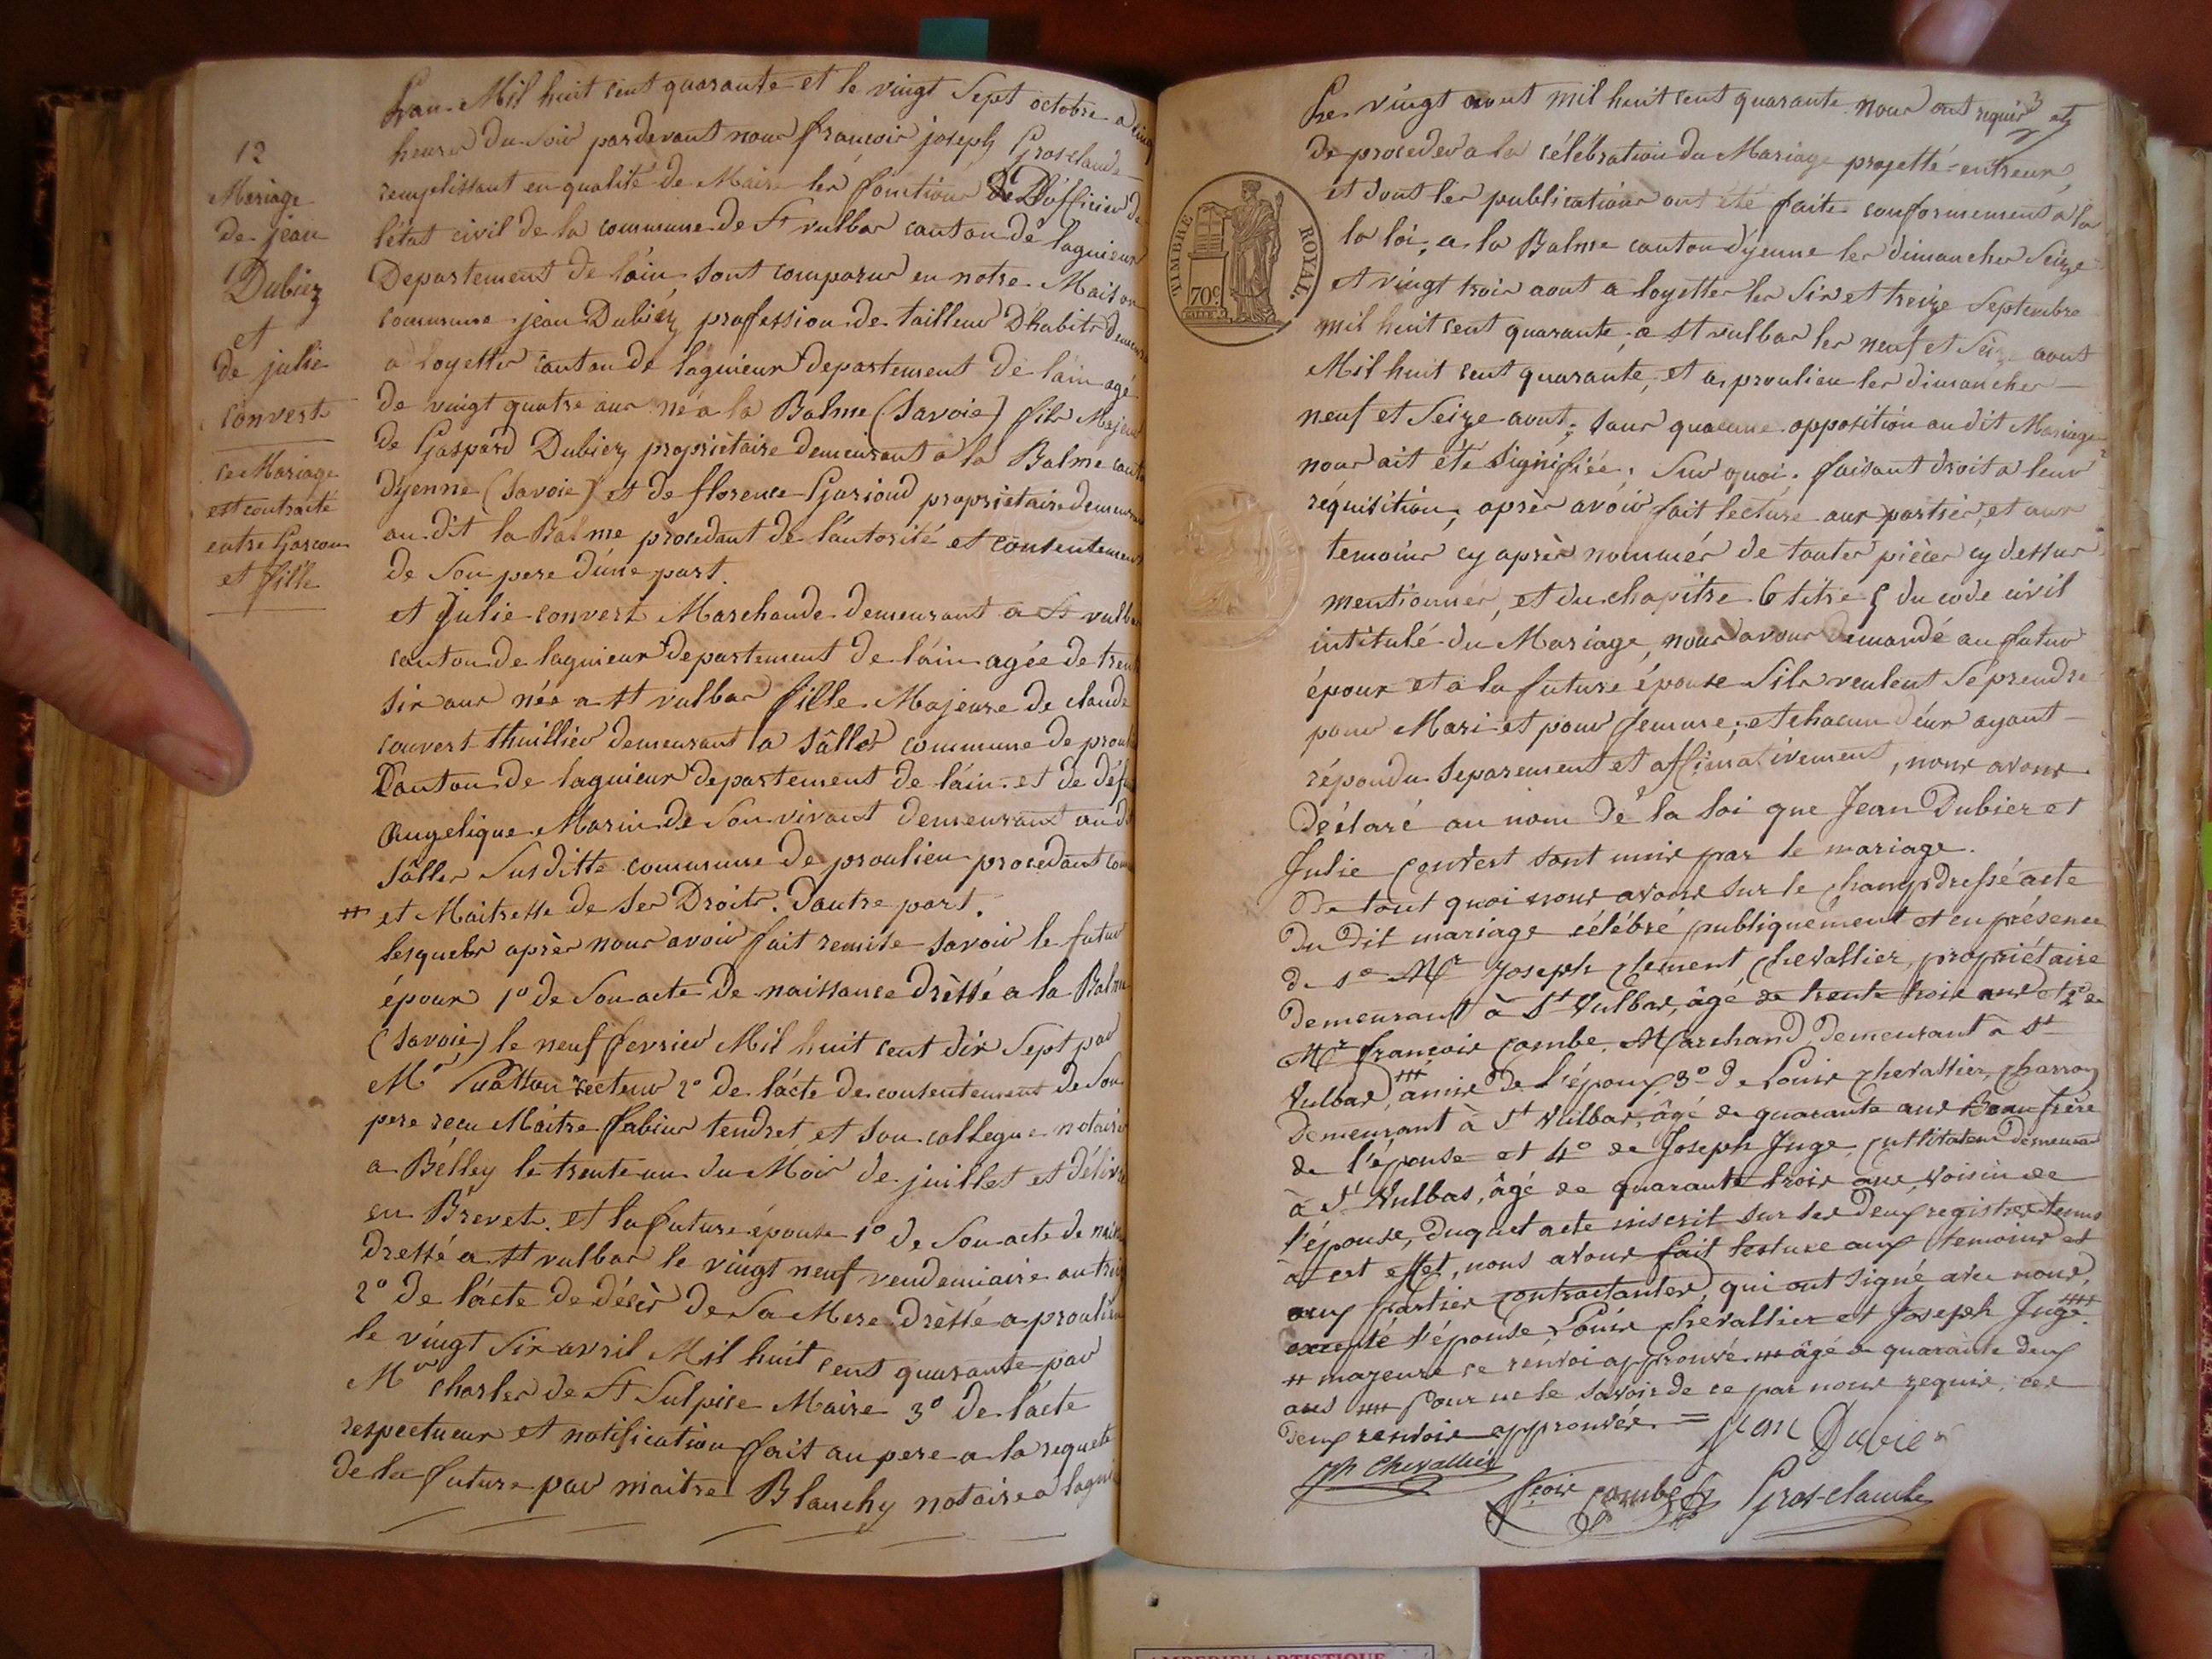 12
Mariage
de jean
Dubiez
et
de julie
convert
ce Mariage
est contracté
entre Garcon
et fille
Lan Mil huit cent quarante et le vingt Sept octobre a cinq
heures du Soir pardevant nous françois joseph Grosclaude
remplissant en qualité de Maire les fonctions De D'officier de
l'état civil de la commune de St vulbas canton de lagnieur
Departement de lain, sont comparus en notre Maison
commune jean Dubiéz profession de tailleur D'habits demeurant
a loyettes canton de lagnieur departement de l'ain agé
de vingt quatre ans né a la Balme (Savoie) fils Majeur
de Gaspard Dubiez propriétaire demeurant a la Balme canton
dyenne (Savoie) et de florence Garioud proprietaire demeurant
au dit la Balme procedant de l'autorité et consentement
de Son pere d'une part.
et Julie convert Marchande demeurant a St vulbas
canton de lagnieur departement de l'ain agée de trente
six ans née a St vulbas fille Majeure de claude
convert thuillier demeurant a Sâlles commune de proulieu
Canton de lagnieur departement de l'ain et de défunte
Angelique Marin de Son vivant demeurant au dit
Sâlles Susditte commune de proulieu procedant comme
# et Maitresse de Ses Droits. d'autre part.
lesquels après nous avoir fait remise savoir le futur
époux 1° de Son acte de naissance Dréssé a la Balme
(Savoie) le neuf fevrier Mil huit cent dix Sept par
Mr recteur 2° de l'acte de consentement de Son
pere recu Maitre fabius tendret et son collegue notaire
a Bélley le trente un du Mois de juillet et délivré
en Brevet. et la future épouse 1° de Son acte de naissance
dressé a St vulbas le vingt neuf vendemiaire an treize
2° de l'acte de décès de Sa Mere dréssé a proulieu
le vingt Six avril Mil huit cent quarante par
Mr charles de St Sulpice Maire 3° de l'acte
respectueux et notification fait au pere a la requete
de la future par maitre Blanchy notaire a lagnieu
3
Le vingt aout mil huit cent quarante nous ont requis
de proceder a la célébration du Mariage projetté entreux
et dont les publications ont été faites conformement a la
la loi, a la Balme canton dyenne les dimanches Seize
et vingt trois aout a loyettes les Six et treize Septembre
mil huit cent quarante, a St vulbas les neuf et Seize aout
Mil huit cent quarante, et a proulieu les dimanches
neuf et Seize aout, sans quaucune opposition au dit Mariage
nous ait été Signifiée. Sur quoi. faisant droit a leur
réquisition, après avoir fait lecture aux parties, et aux
temoins cy après nommés de toutes pièces cy dessus
mentionnés, et du chapitre 6 titre 5 du code civil
intitulé du Mariage, nous avons demandé au futur
époux et a la future épouse Sils veulent Se prendre
pour Mari et pour femme; et chacun d'eux ayant
répondu Separement et affirmativement, nous avons
Déclaré au nom de la loi que Jean Dubiez et
Julie Convert sont unis par le mariage.
De tout quoi nous avons sur le champ dressé acte
du dit mariage célébré publiquement et en présence
de 1° Mr Joseph Clement Chevallier, propriétaire
demeurant à St Vulbas, âgé de trente trois ans et 2° de
Mr françois Combe, Marchand demeurant à St
Vulbas, ### amis de l'époux 3° de Louis Chevallier, Charron
demeurant à St Vulbas, âgé de quarante ans Beau frère
de l'épouse et 4° de Joseph Juge, Cultivateur demeurant
à St Vulbas, âgé de quarante trois ans, Voisin de
l'épouse, duquel acte inscrit sur les deux registres tenus
à cet effet, nous avons fait lecture aux temoins et
aux parties contractantes, qui ont signé avec nous,
excepté l'épouse, Louis Chevallier et Joseph Juge. ####
# majeure ce renvoi approuvé. ### âgé de quarante deux
ans #### Pour ne le savoir de ce par nous requis. ces
deux renvois approuvés. = Jean Dubiez
Jh Chevallier
fçois Combe Grosclaude
TIMBRE ROYAL.
70c